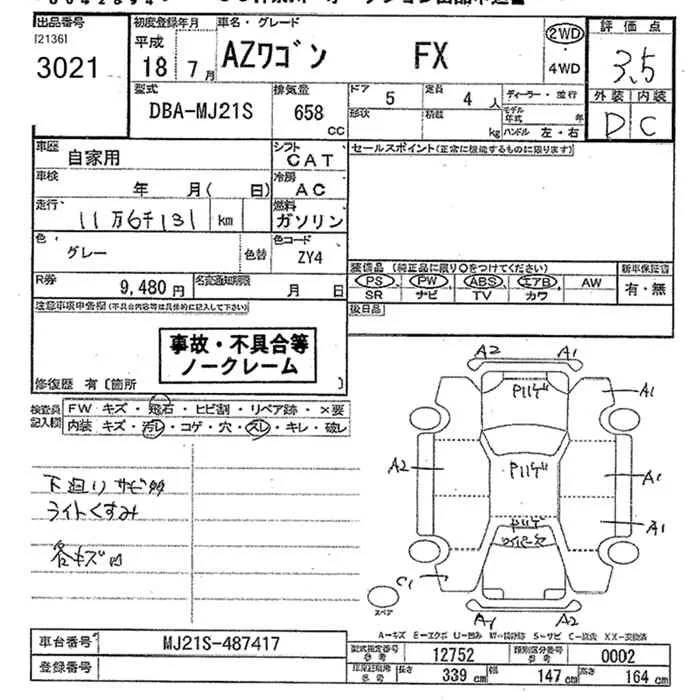 出品番号
[2136]
3021
初度登録年月
平成
18 7月
車名・グレード
AZワゴン FX
2WD
4WD
評価点
3.5
外装 内装
D C
型式
DBA-MJ21S
排気量
658
cc
ドア 5
定員 4人
形状
積載 kg
ディーラー・並行
モデル年式 年
ハンドル 左・右
車歴
自家用
シフト
CAT
セールスポイント(正常に機能するものに限ります)
車検
年 月( 日)
冷房
AC
走行
11万6千131 km
燃料
ガソリン
色
グレー
色替
色コード
ZY4
R券
9,480円
名変通知期限
月 日
装備品(純正品に限り○をつけてください)
PS PW ABS エアB AW
SR ナビ TV カワ
新車保証書
有・無
注意事項申告欄(不具合内容等は具体的に記入して下さい)
後日品
事故・不具合等
ノークレーム
修復歴 有〔箇所 〕
検査員記入欄
FW キズ・飛石・ヒビ割・リペア跡・×要
内装 キズ・汚レ・コゲ・穴・スレ・キレ・破レ
下廻りサビ
ライトくすみ
各キズ凹
A2 A1
A1
A2
A1
A1
C1
A2
スペア
A-キズ E-エクボ U-凹み W-補修跡 S-サビ C-腐食 XX-交換済
車台番号
MJ21S-487417
登録番号
型式指定番号 参考
12752
類別区分番号 参考
0002
車両寸法 参考
長さ 339 cm
幅 147 cm
高さ 164 cm